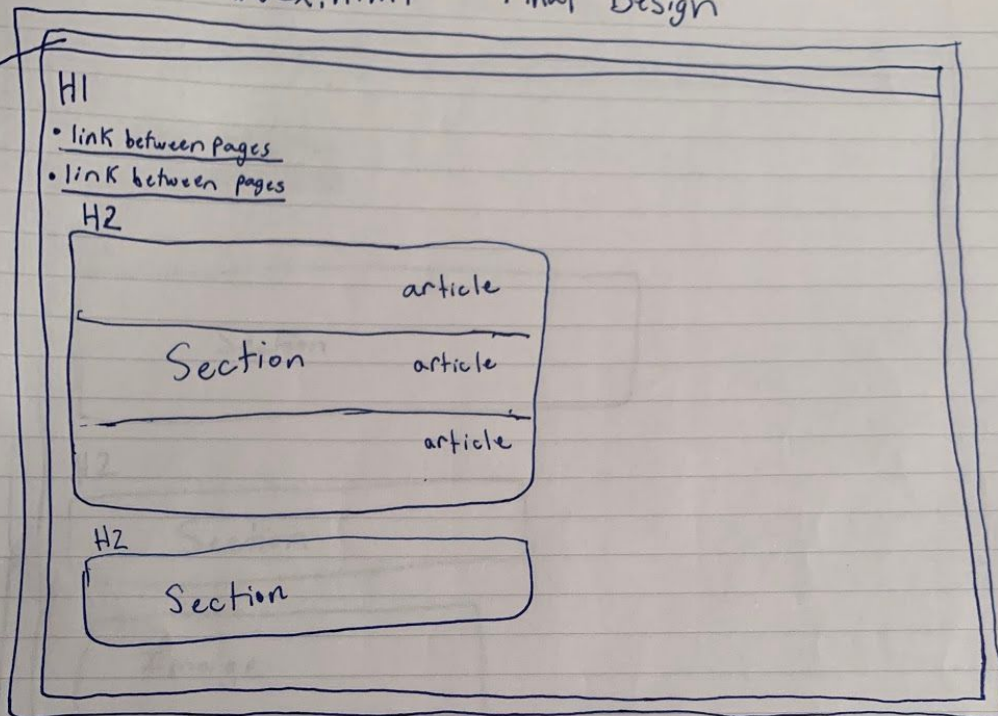 Final Design
H1
• link between pages
• link between pages
H2
article
Section article
article
H2
Section